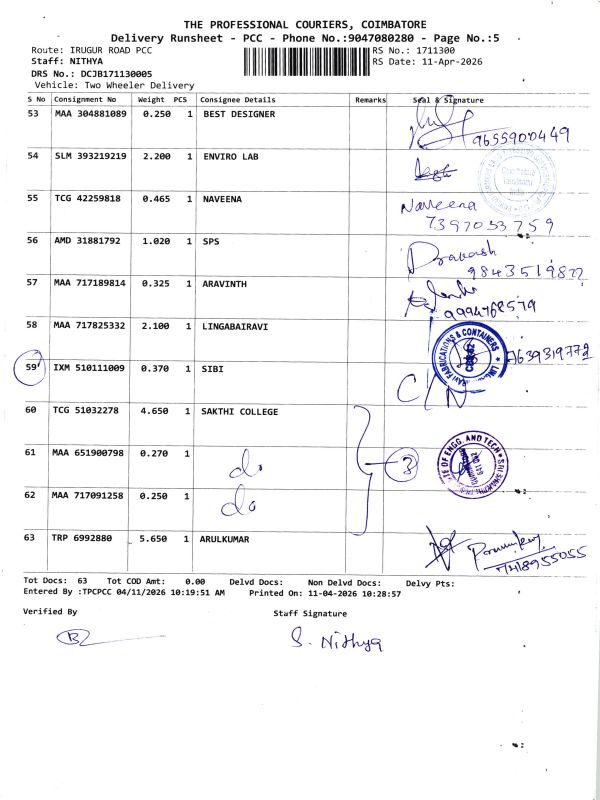 THE PROFESSIONAL COURIERS, COIMBATORE
Delivery Runsheet - PCC - Phone No.:9047080280 - Page No.:5
Route: IRUGUR ROAD PCC RS No.: 1711300
Staff: NITHYA RS Date: 11-Apr-2026
DRS No.: DCJB171130005
Vehicle: Two Wheeler Delivery
S No Consignment No Weight PCS Consignee Details Remarks Seal & Signature
53 MAA 304881089 0.250 1 BEST DESIGNER
9655900449
54 SLM 393219219 2.200 1 ENVIRO LAB
55 TCG 42259818 0.465 1 NAVEENA Naveena
7397033759
56 AMD 31881792 1.020 1 SPS Prakash
57 MAA 717189814 0.325 1 ARAVINTH
9994768579
58 MAA 717825332 2.100 1 LINGABAIRAVI
FABRICATIONS & CONTAINERS
59 IXM 510111009 0.370 1 SIBI C/N
60 TCG 51032278 4.650 1 SAKTHI COLLEGE
61 MAA 651900798 0.270 1 do 3
OF ENGG. AND TECH
62 MAA 717091258 0.250 1 do
63 TRP 6992880 5.650 1 ARULKUMAR
Tot Docs: 63 Tot COD Amt: 0.00 Delvd Docs: Non Delvd Docs: Delvy Pts:
Entered By :TPCPCC 04/11/2026 10:19:51 AM Printed On: 11-04-2026 10:28:57
Verified By Staff Signature
S. Nithya